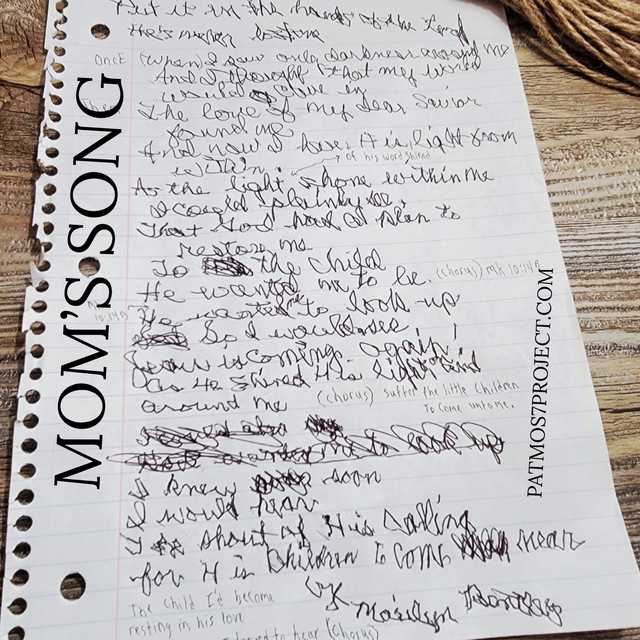 Put it in the hands of the Lord
He's never
once (when) I saw only darkness around me
And I thought that my world
would close in
The love of my dear Savior
found me
And now I have A is light from
within.
of his word shined
As the light shone within me
I could plainly see
That God had A plan to
restore me
To the Child
He wanted me to be. (chorus) MK 10:14
He wanted me to look up
So I would see
Jesus is coming again!
As He Shined His light
around me
(chorus) Suffer the little Children
To come unto me.
me to look up
I knew soon
I would hear
A shout of His calling
for His Children to Come near
By Marilyn
The Child I'd become
resting in his love
to hear (Chorus)
MOM'S SONG
PATMOS7PROJECT.COM